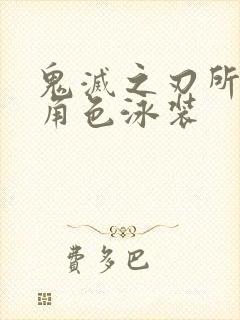 鬼滅之刃所
角色泳裝
費多巴